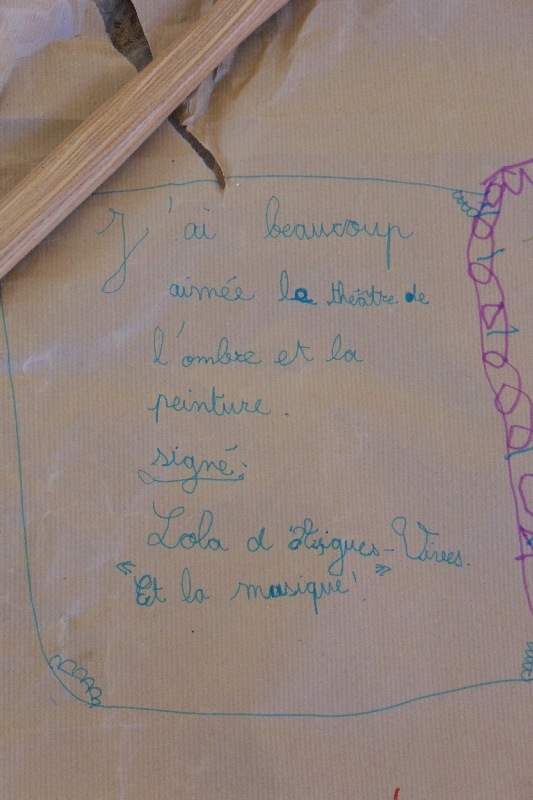 J'ai beaucoup
aimée le théâtre de
l'ombre et la
peinture.
signé:
Lola d'Aigues-Vives.
"Et la musique!"